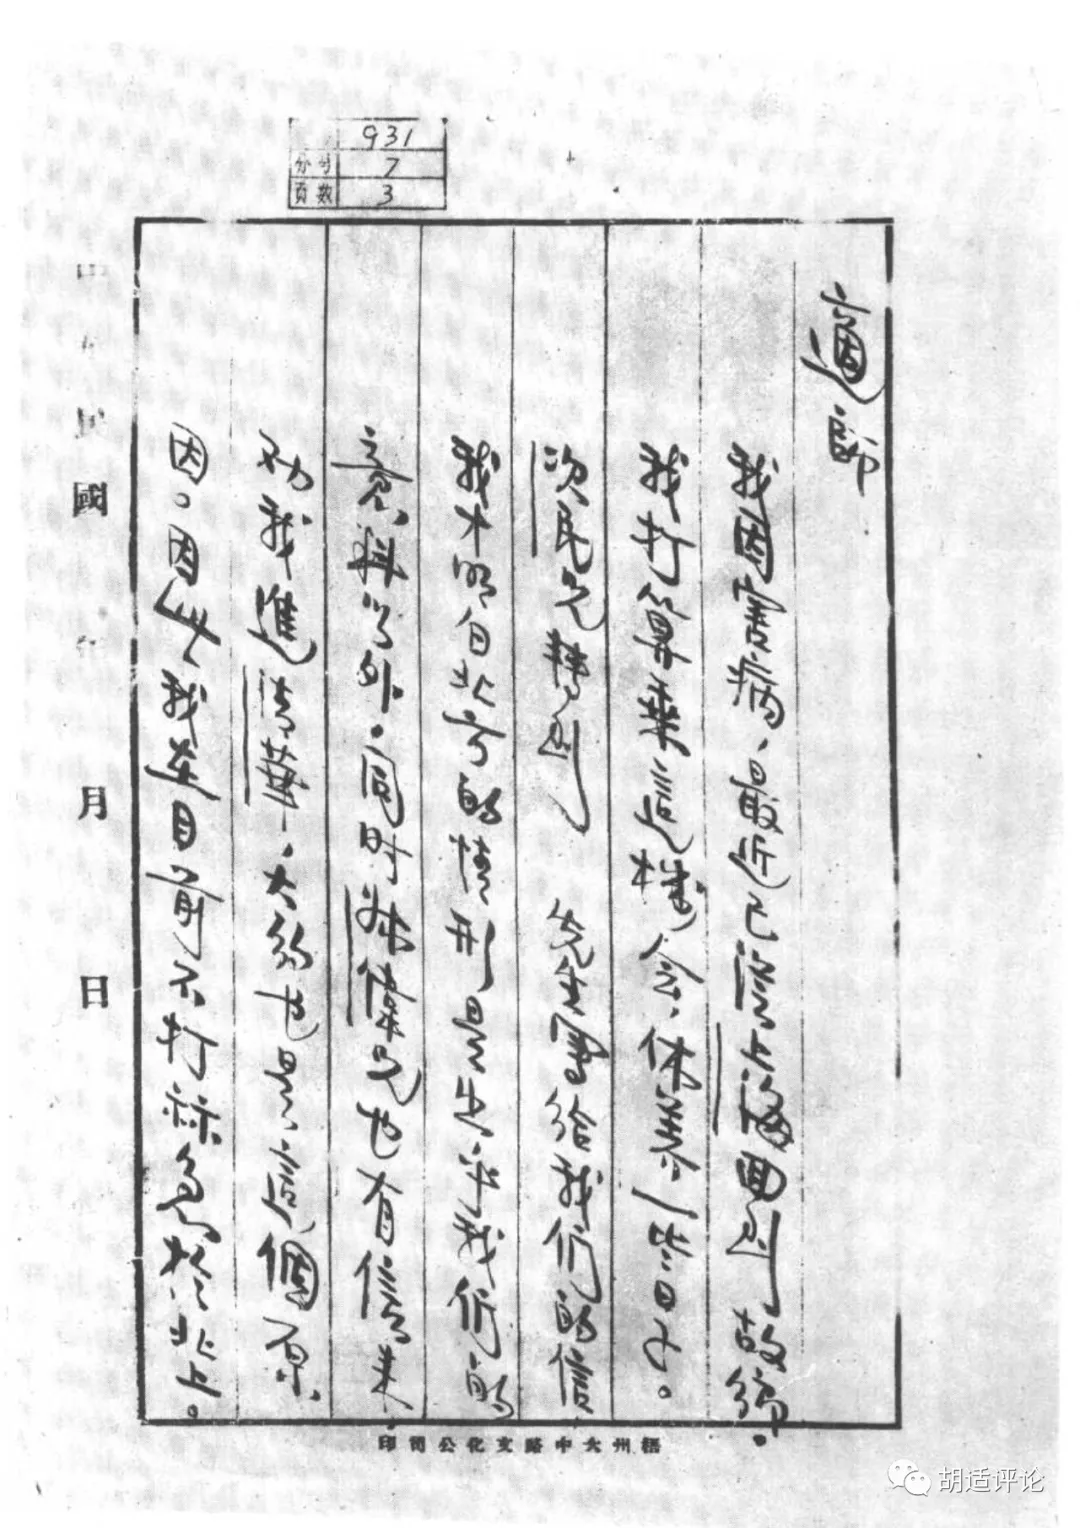 931
分号 7
页数 3
適師
我因害病，最近已從上海回到故鄉。
我打算藉這機會，休養一些日子。
次民兄轉到　先生寫給我們的信
我才明白北方的情形是出乎我們的
意料以外，同時　偉兄也有信來，
勸我進清華，大約也是這個原
因。因此我在目前不打算急於北上。
中華民國　年　月　日
梧州大中路文化公司印
胡适评论